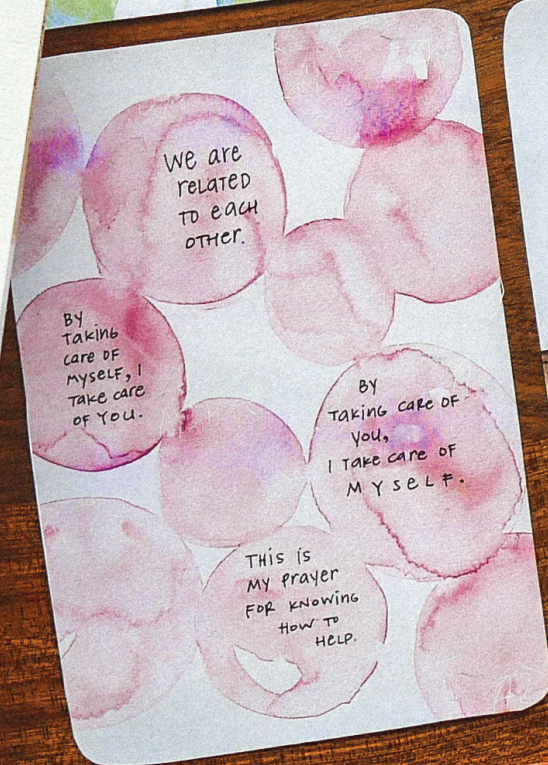 We are
related
to each
other.
By
taking
care of
myself, I
take care
of you.
By
taking care of
you,
I take care of
myself.
This is
my prayer
for knowing
how to
help.